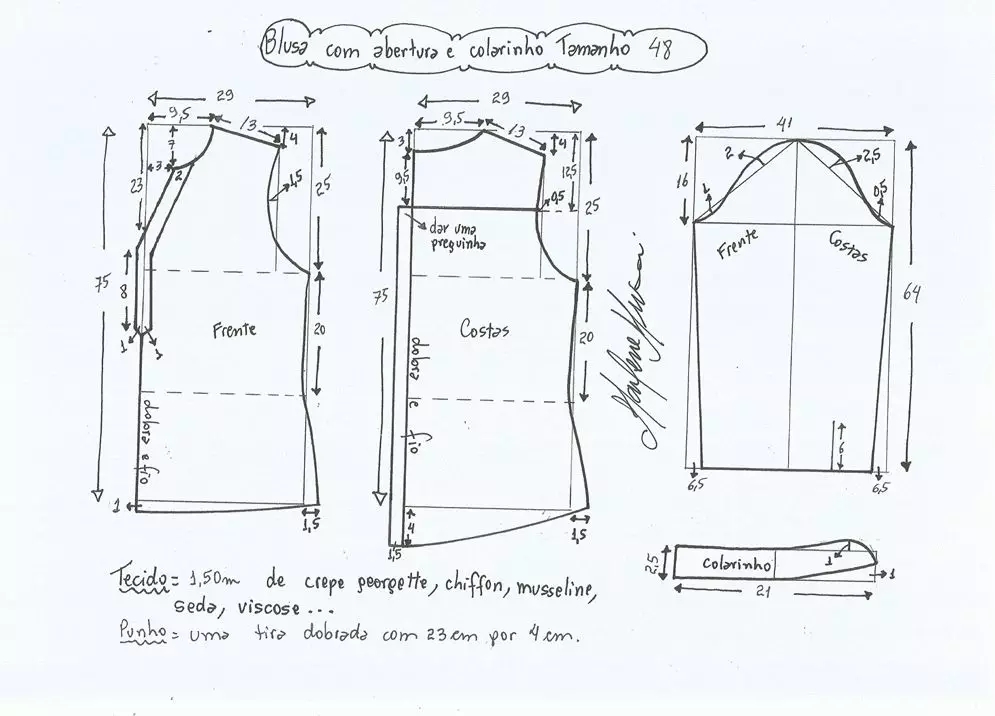 Blusa com abertura e colarinho Tamanho 48
29
9,5
13
7
4
3
2
23
4,5
25
75
8
1
1
Frente
20
dobra e fio
1
1,5
29
9,5
13
3
4
9,5
12,5
0,5
25
dar uma preguinha
75
Costas
20
dobra e fio
4
1,5
1,5
41
2
2,5
16
1
0,5
Frente
Costas
64
6
6,5
6,5
Colarinho
2,5
1
1
21
Tecido = 1,50m de crepe georgette, chiffon, musseline,
seda, viscose ...
Punho = uma tira dobrada com 23 cm por 4 cm.